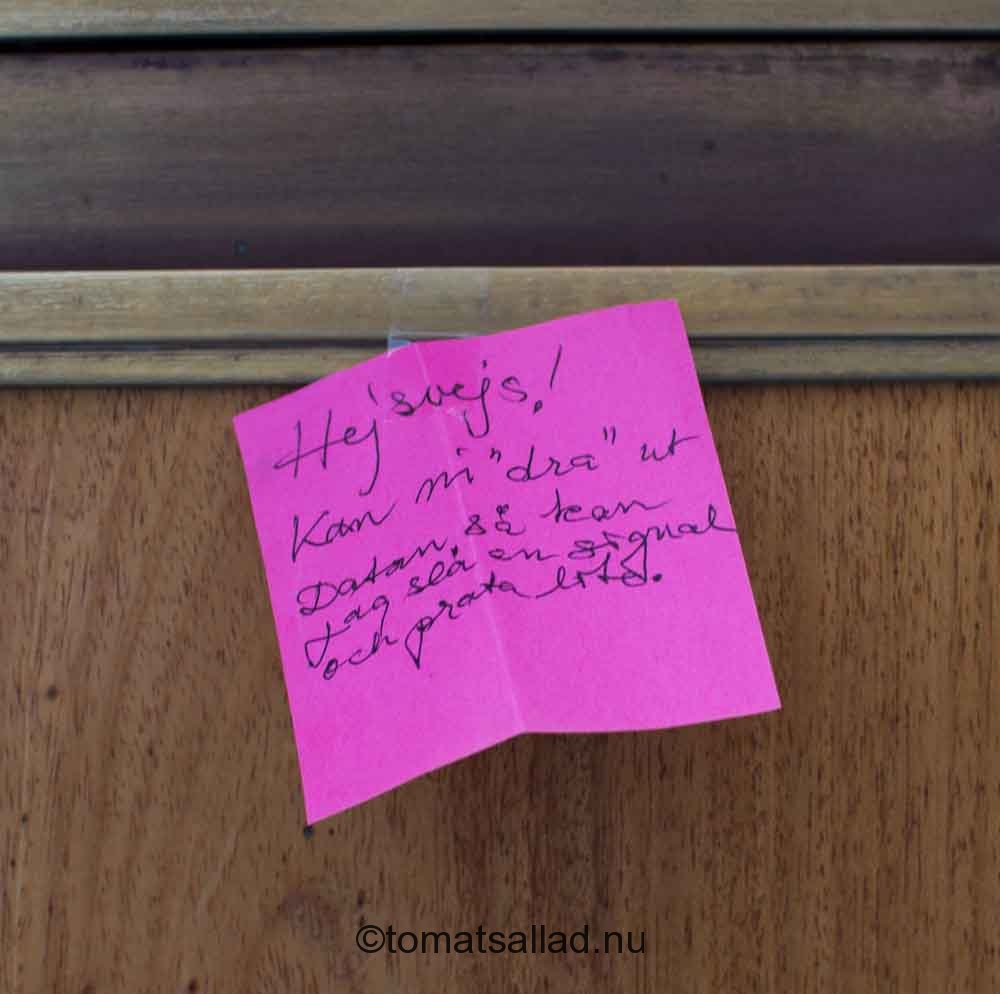 Hej svejs!
Kan ni "dra" ut
Datan, så kan
jag slå en signal
och prata lite.
©tomatsallad.nu